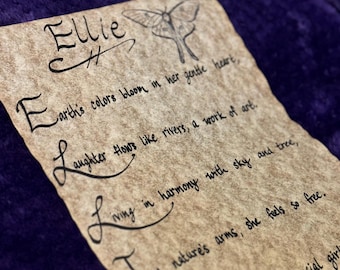 Ellie
Earth's colors bloom in her gentle heart,
Laughter flows like rivers, a work of art.
Living in harmony with sky and tree,
In nature's arms, she feels so free.
girl